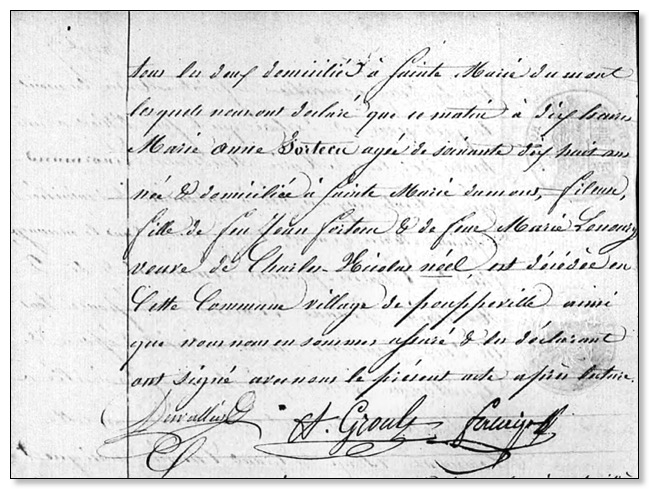 tous les deux domiciliés à Sainte Marie du mont
lesquels nous ont declaré que ce matin à dix heures
Marie anne Fortecu agée de soixante dix huit ans
née & domiciliée à Sainte Marie dumont, fileuse,
fille de feu Jean fortecu & de feue Marie Lenoury
veuve de Charles Nicolas néél est décédée en
Cette Commune village de pouppeville ainsi
que nous nous en sommes assuré & les déclarant
ont signé avec nous le présent acte après lecture.
A. Groult